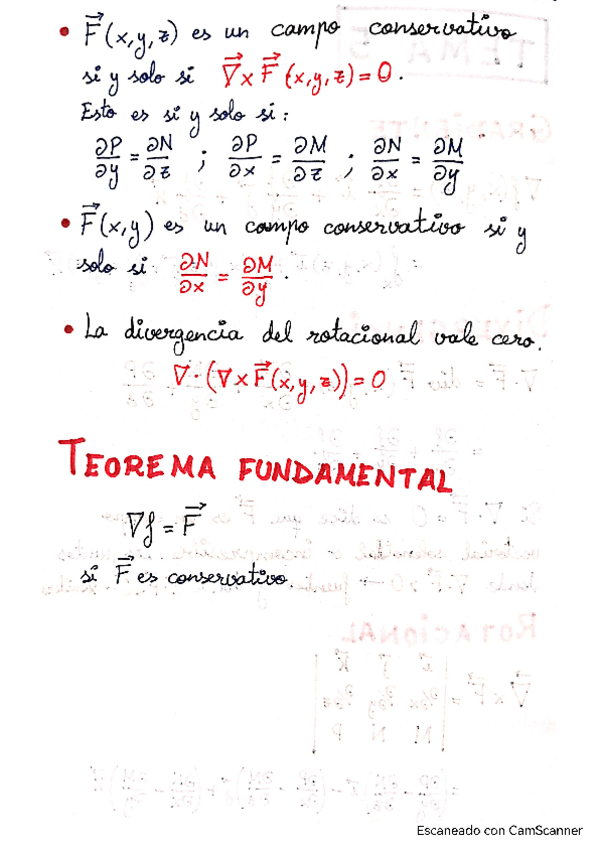 • F⃗(x,y,z) es un campo conservativo
si y solo si ∇⃗x F⃗(x,y,z)=0.
Esto es si y solo si:
∂P/∂y = ∂N/∂z ; ∂P/∂x = ∂M/∂z ; ∂N/∂x = ∂M/∂y
• F⃗(x,y) es un campo conservativo si y
solo si ∂N/∂x = ∂M/∂y.
• La divergencia del rotacional vale cero.
∇·(∇xF⃗(x,y,z))=0
TEOREMA FUNDAMENTAL
∇f = F⃗
si F⃗ es conservativo
Escaneado con CamScanner